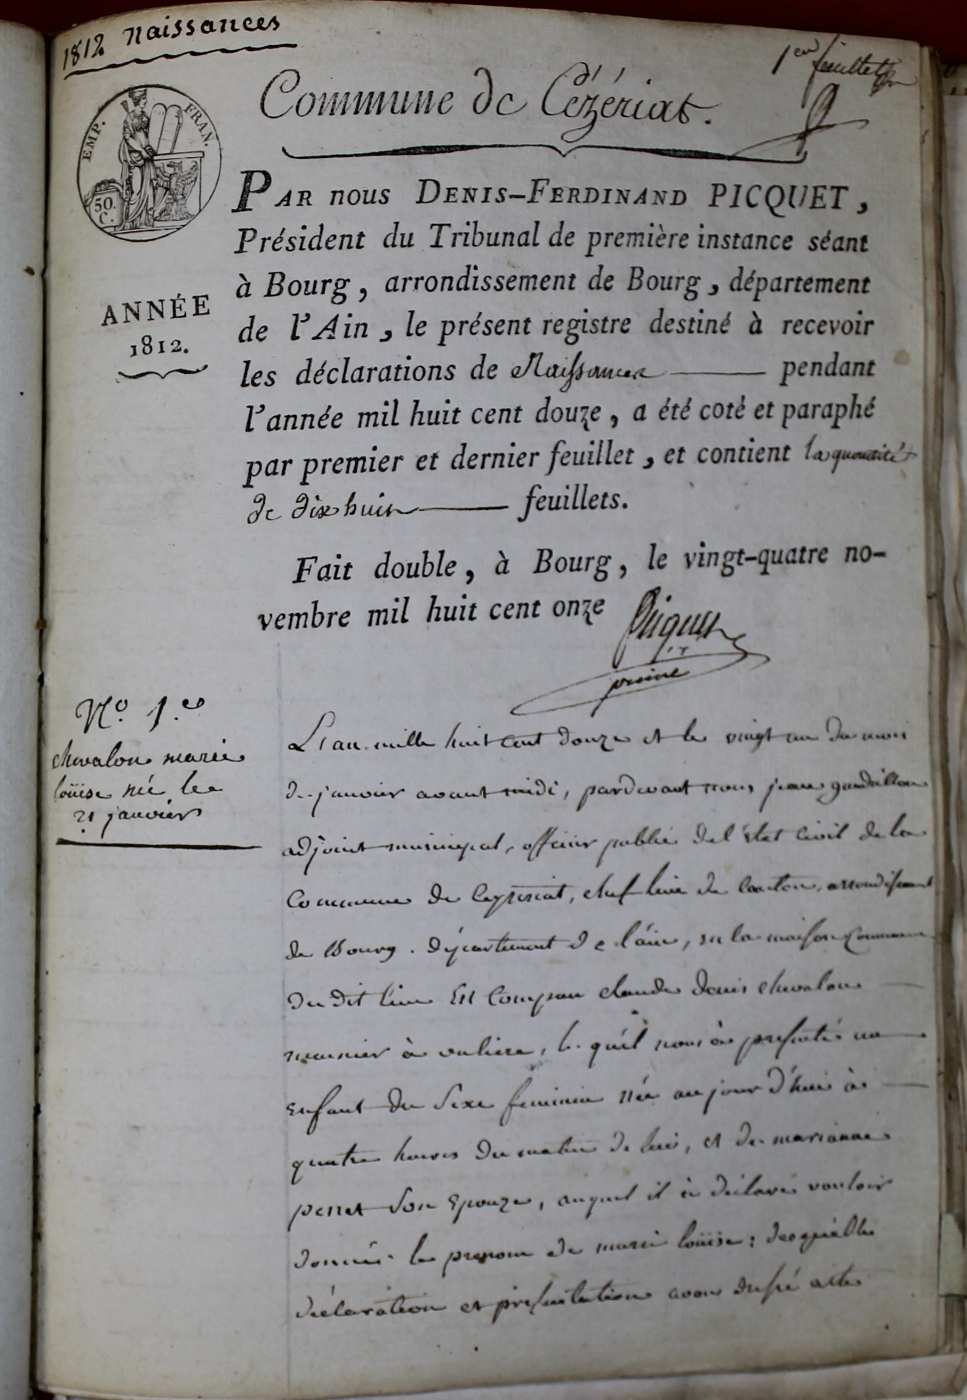 1812 Naissances
1er feuillet
Commune de Cézériat.
EMP. FRAN.
50.
C.
ANNÉE
1812.
PAR nous DENIS-FERDINAND PICQUET,
Président du Tribunal de première instance séant
à Bourg, arrondissement de Bourg, département
de l'Ain, le présent registre destiné à recevoir
les déclarations de Naissances pendant
l'année mil huit cent douze, a été coté et paraphé
par premier et dernier feuillet, et contient la quantité
de dix huit feuillets.
Fait double, à Bourg, le vingt-quatre no-
vembre mil huit cent onze
Picquet
N.º 1.er
chevalon marie
loüise née le
21 janvier
L'an mille huit cent douze et le vingt un du mois
de janvier avant midi, pardevant nous jean
adjoint municipal, officier public de l'état civil de la
Commune de Ceyzériat, chef lieu de canton, arrondissement
de Bourg. département de l'ain, en la maison Commune
du dit lieu Est Comparu claude denis chevalon
meunier à le quél nous à présenté un
enfant du Sexe feminin née aujourd'hui à
quatre heures du matin de lui, et de marianne
perret son Epouze, auquel il à déclaré vouloir
donner le prenom de marie loüise; desquélle
déclaration et présentation avons dressé acte